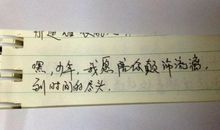 嘿，少年，我愿陪你颠沛流离，
到时间的尽头.